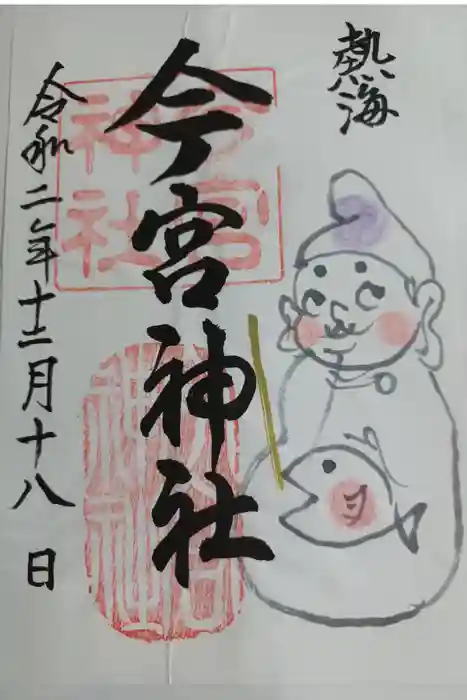 熱海
今宮神社
今宮
神社
令和二年十二月十八日